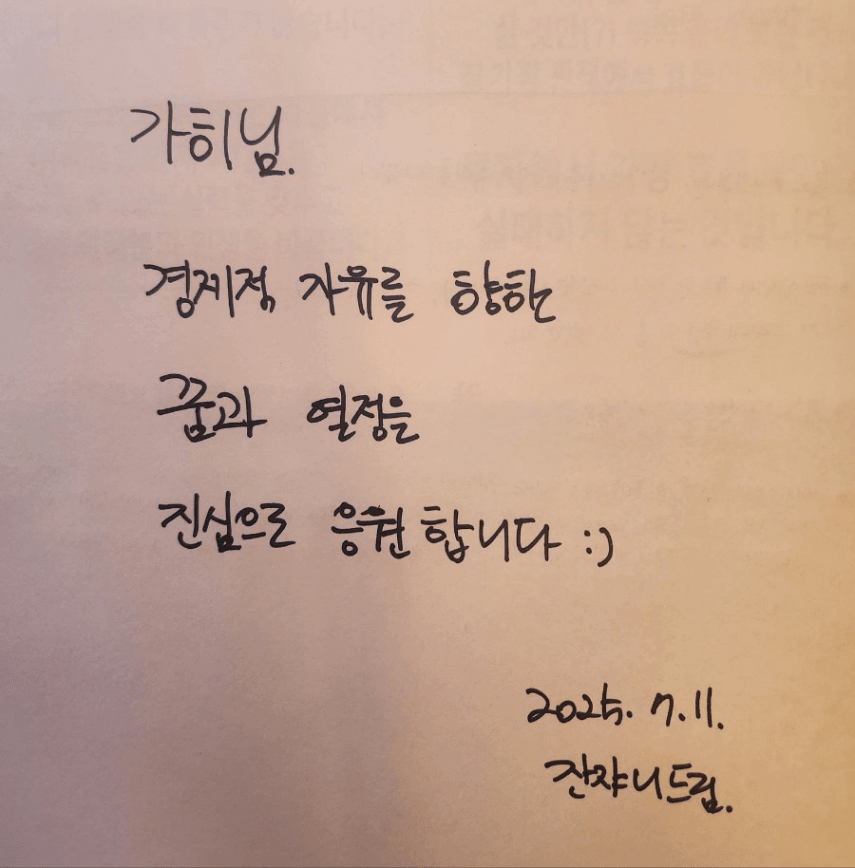 가히님.
경제적 자유를 향한
꿈과 열정을
진심으로 응원합니다 :)
2025. 7. 11.
잔쟈니드림.